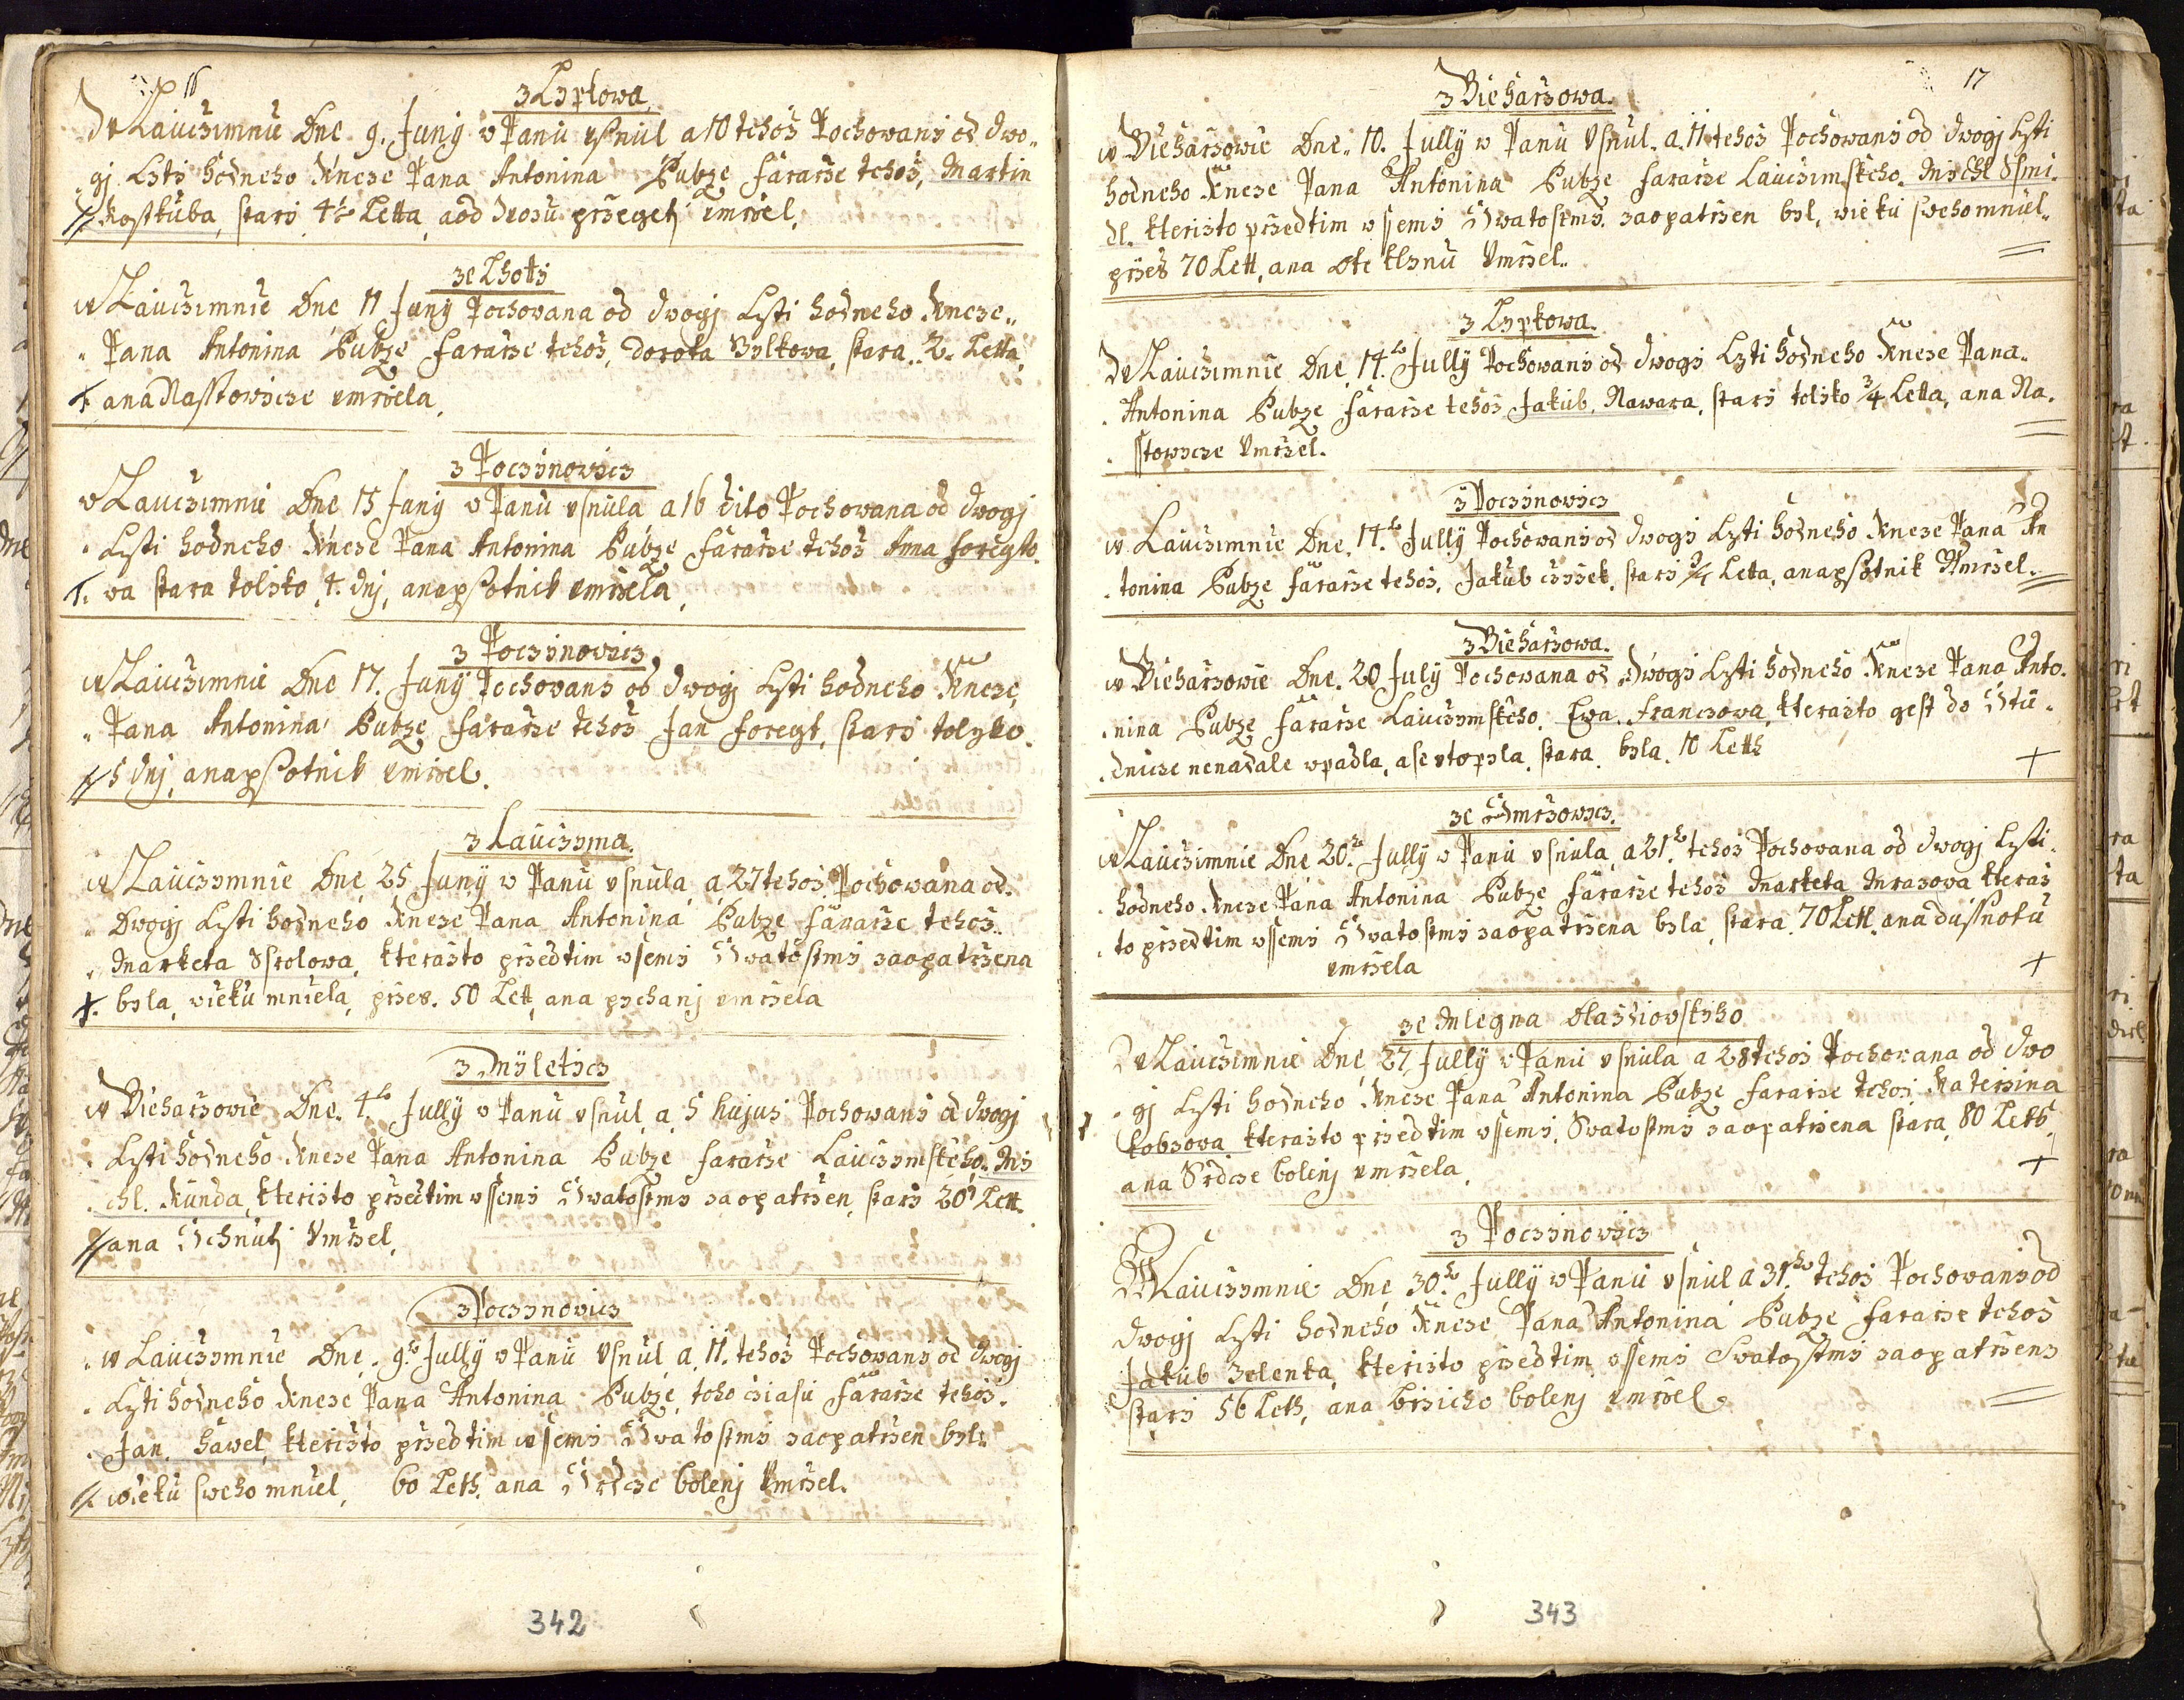 16
z Lypkowa
We Lauczimnu Dne 9. Juny w Panu usnul a 10 tehoz Pochowany od dwo
gj Czti hodneho Kneze Pana Antonina Bubze Fararze tehoz, Martin
Kostkuba, stary 4½ Letta, a od
ze Lhotty
w Lauczimnie Dne 11 Juny Pochowana od dwogj Czti hodneho Kneze
Pana Antonina Bubze Fararze tehoz, Dorota Bylkowa, stara 2. Letta,
a na Nasstowicze umrzela,
z Poczinowicz
w Lauczimnie Dne 15 Juny w Panu usnula a 16 dito Pochowana od dwogj
Czti hodneho Kneze Pana Antonina Bubze Fararze tehoz Anna Foreyto
wa stara toliko 4. dnj, a na psotnik umrzela,
z Poczinowicz
w Lauczimnie Dne 17. Juny Pochowany od dwogj Czti hodneho Kneze,
Pana Antonina Bubze Fararze tehoz Jan Foreyt, stary tolyko
5 dnj, a na psotnik umrzel.
z Lauczyma
w Lauczymnie Dne 25 Juny w Panu usnula a 27 tehoz Pochowana od
Dwogj Czti hodneho Kneze Pana Antonina Bubze Fararze tehoz
Marketa Ssrolowa, kterazto przedtim wssemi Swatostmi zaopatrzena
byla, wieku mniela, przes. 50 Lett, a na pychanj umrzela
z Myleticz
w Biecharzowie Dne. 4.ho Jully w Panu usnul a 5 hujus Pochowany od dwogj
Czti hodneho Kneze Pana Antonina Bubze Fararze Lauczymskeho. Mi
chl. Kunda, kterizto przedtim wssemi Swatostmi zaopatrzen, stary 20 Lett.
a na Schnutj Umrzel,
z Poczinowicz
w Lauczymnie Dne. 9.ho Jully w Panu Usnul a 11. tehoz Pochowany od dwogj
Czti hodneho Kneze Pana Antonina Bubze, toho cziasu Fararze tehoz.
Jan Hawel, kterizto przedtim wssemi Swatostmi zaopatrzen byl
wieku sweho mniel, 60 Leth, a na Srdcze bolenj Umrzel.
342
17
z Biecharzowa.
w Biecharzowie Dne. 10. Jully w Panu Usnul. a 11 tehoz Pochowany od dwogj Czti
hodneho Kneze Pana Antonina Bubze Fararze Lauczimskeho. Michl Ssmi
dl. kterizto przedtim wssemi Swatostmi zaopatrzen byl, wieku sweho mniel
przes 70 Lett, a na Umrzel.
z Lypkowa.
We Lauczimnie Dne 14.ho Jully Pochowany od dwogi Czti hodneho Kneze Pana
Antonina Bubze Fararze tehoz Jakub, Nawara, stary toliko ¾ Letta, a na Na
sstowicze Umrzel.
z Poczinowicz
w Lauczimnie Dne. 14.ho Jully Pochowany od dwogi Czti hodneho Kneze Pana An
tonina Bubze Fararze tehoz. Jakub cziżek, stary ¾ Letta, a na psotnik Umrzel.
z Biecharzowa.
w Biecharzowie Dne. 20 July Pochowana od dwogi Czti hodneho Kneze Pana Anto
nina Bubze Fararze Lauczymskeho. Ewa. Francowa, kterazto gest do Stu
dnicze nenadale wpadla, a se utopyla, stara. byla. 10 Leth
ze Smrzowicz.
w Lauczimnie Dne 20.ho Jully w Panu usnula, a 21.ho tehoz Pochowana od dwogj Czti
hodneho Kneze Pana Antonina Bubze Fararze tehoz Marketa Mrazowa kteraz
to przedtim wssemi Swatostmi zaopatrzena byla, stara. 70 Lett, a na dussnotu
umrzela
ze Mlegna Blaziowskyho
We Lauczimnie Dne 27 Jully w Panu usnula a 28 tehoz Pochowana od dwo
gj Czti hodneho Kneze Pana Antonina Bubze Fararze tehoz Katerzina
Kobsowa kterazto przedtim wssemi, Swatostmi zaopatrzena stara, 80 Leth,
a na Srdcze bolenj umrzela,
z Poczinowicz
W Lauczymnie Dne 30.ho Jully w Panu usnul a 31.ho tehoz Pochowany od
dwogj Czti hodneho Kneze Pana Antonina Bubze Fararze tehoz
Jakub Zelenka, kterizto przedtim wssemi Swatostmi zaopatrzeny
stary 56 Leth, a na brzicho bolenj umrzel
343